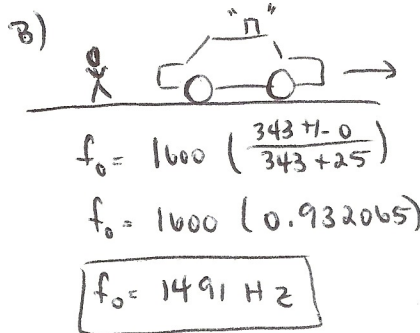 B)
f₀ = 1600 ( 343 +/- 0 / 343 + 25 )
f₀ = 1600 ( 0.932065 )
f₀ = 1491 Hz